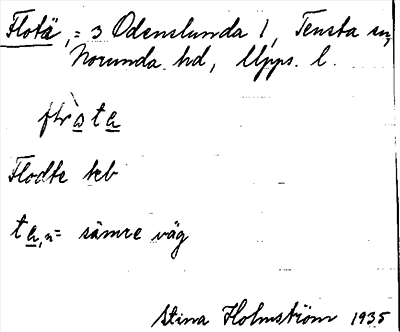 Flotä, = 3 Odenslunda 1, Tensta sn,
Norunda hd, Upps. l.
Flodte
ta, n = sämre väg
Stina Holmström 1935